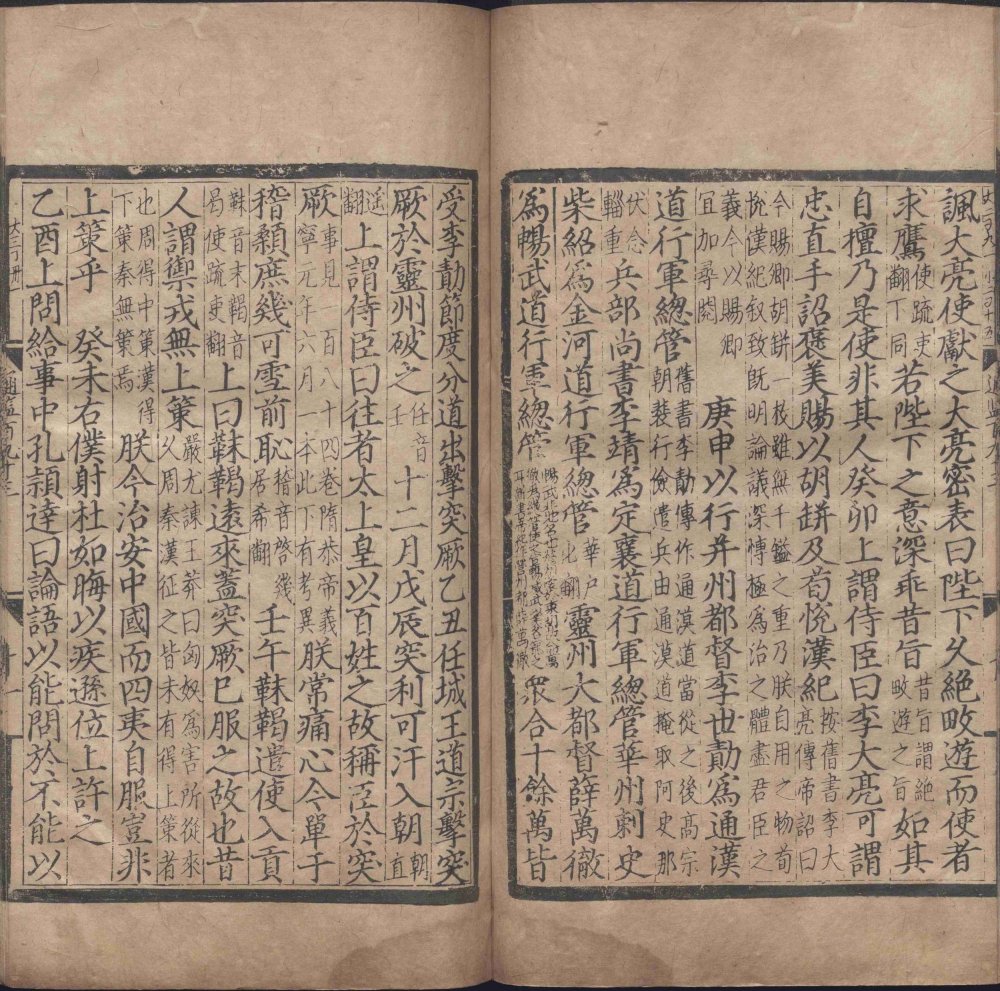 諷大亮使獻之大亮密表曰陛下久絶畋遊而使者
求鷹使疏吏翻下同若陛下之意深乖昔旨昔旨謂絶畋遊之旨如其
自擅乃是使非其人癸卯上謂侍臣曰李大亮可謂
忠直手詔褒美賜以胡缾及荀悅漢紀按舊書李大亮傳帝詔曰
今賜卿胡缾一枚雖無千鎰之重乃朕自用之物荀
悅漢紀叙致旣明論議深愽極爲治之體盡君臣之
義今以賜卿宜加尋閱 庚申以行并州都督李世勣爲通漢
道行軍總管舊書李勣傳作通漠道當從之後高宗朝裴行儉遣兵由通漠道掩取阿史那
伏念輜重 兵部尚書李靖爲定襄道行軍總管華州刺史
柴紹爲金河道行軍總管華戶化翻靈州大都督薛萬徹
爲暢武道行軍總管衆合十餘萬皆
受李勣節度分道出擊突厥乙丑任城王道宗擊突
厥於靈州破之任音壬 十二月戊辰突利可汗入朝朝直
遥翻 上謂侍臣曰往者太上皇以百姓之故稱臣於突
厥事見一百八十四卷隋恭帝義寧元年六月一本此下有考異朕常痛心今單于
稽顙庶幾可雪前恥稽音啓幾居希翻 壬午靺鞨遣使入貢
靺音末鞨音曷使疏吏翻 上曰靺鞨遠來蓋突厥巳服之故也昔
人謂禦戎無上策嚴尤諫王莽曰匈奴爲害所從來久周秦漢征之皆未有得上策者
也周得中策漢得下策秦無策焉 朕今治安中國而四夷自服豈非
上策乎 癸未右僕射杜如晦以疾遜位上許之
乙酉上問給事中孔穎達曰論語以能問於不能以